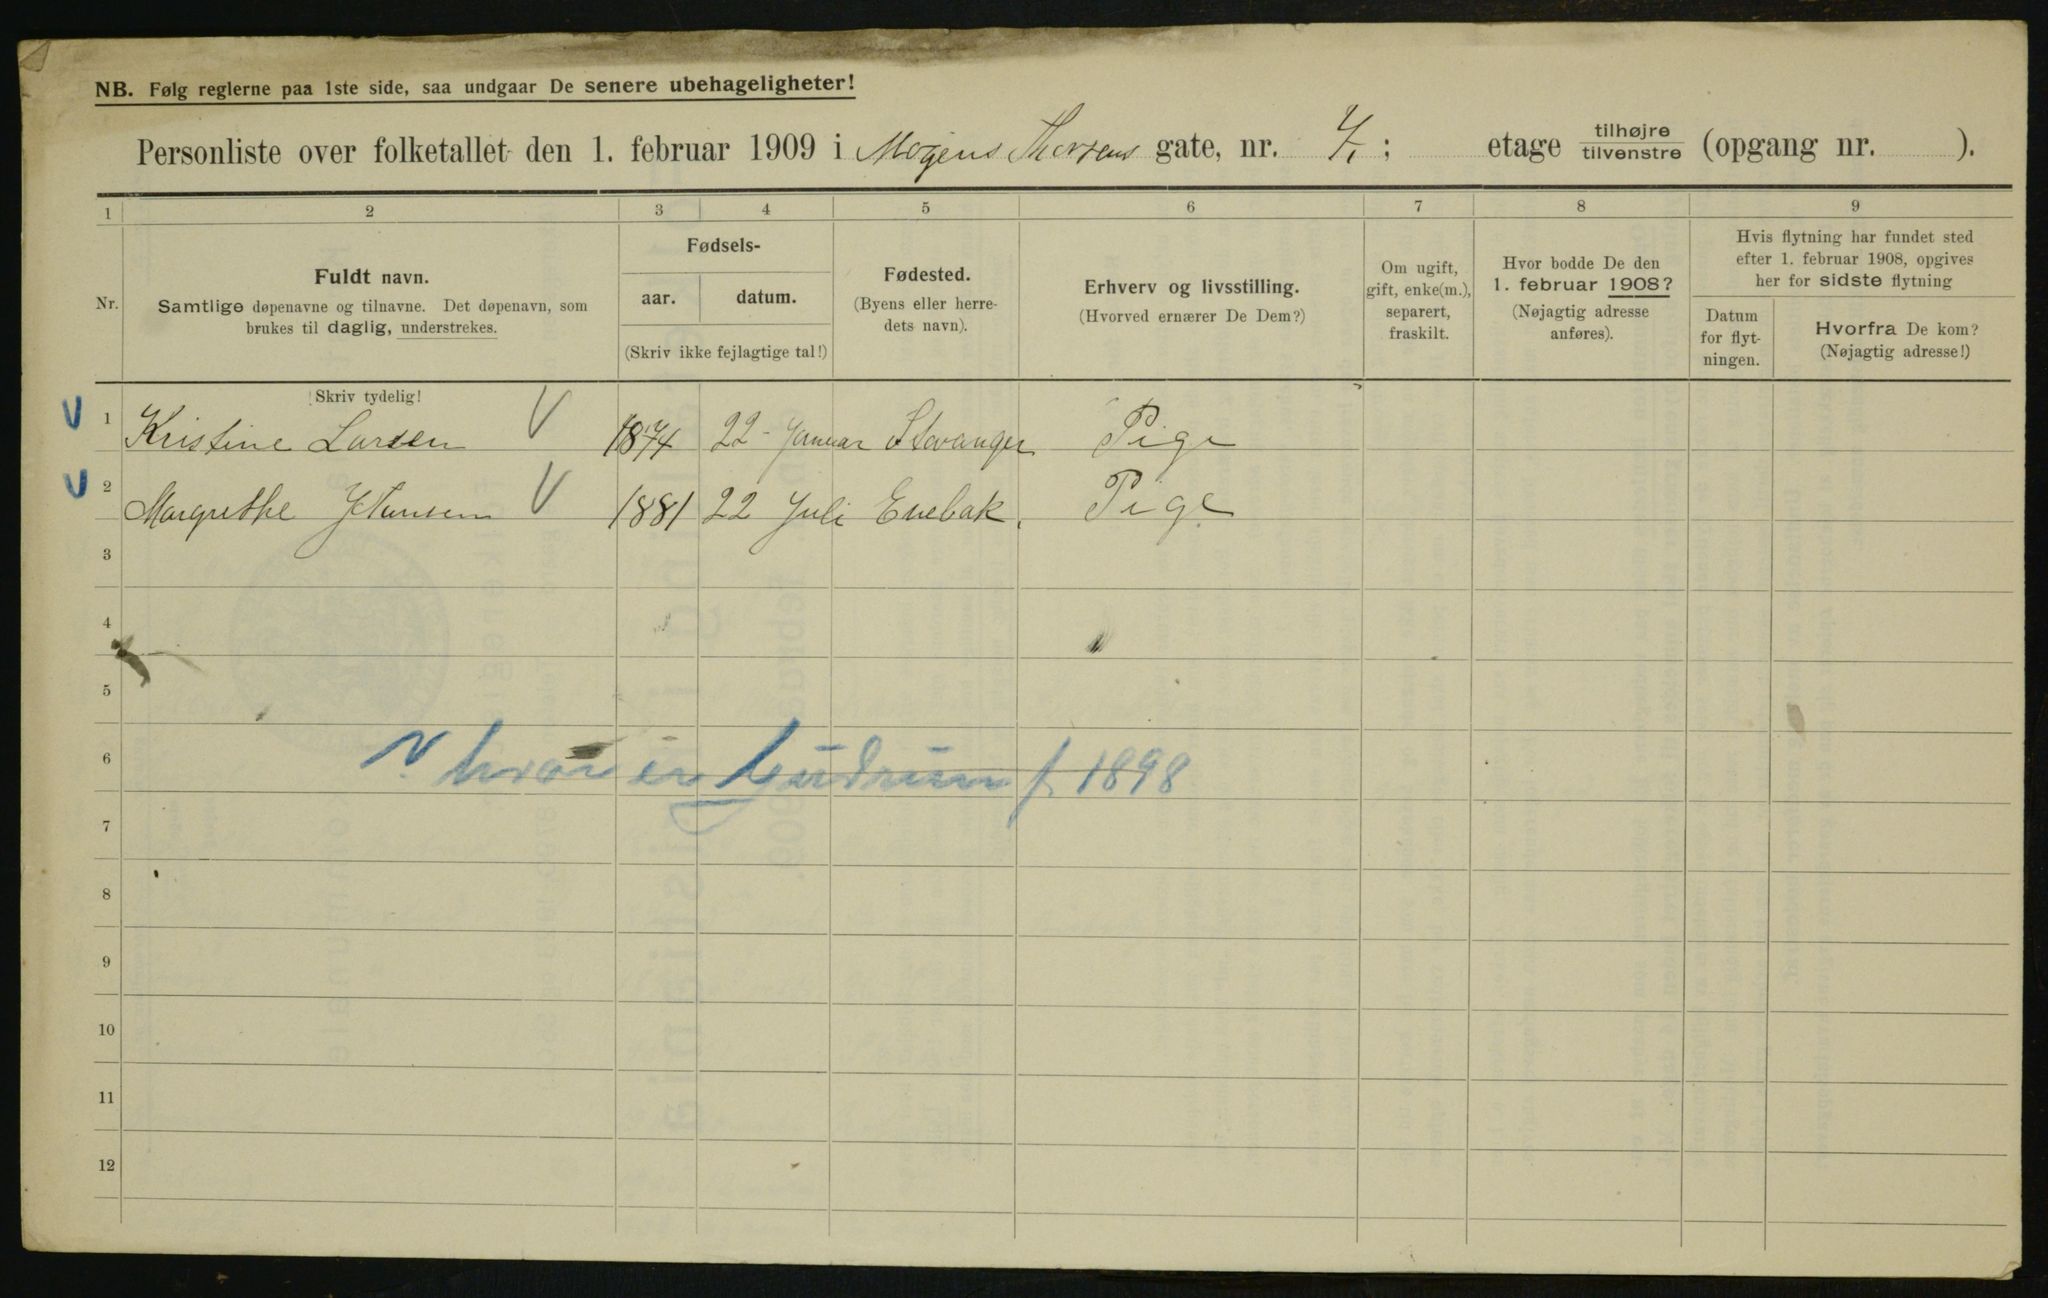 NB. Følg reglerne paa 1ste side, saa undgaar De senere ubehageligheter!
Personliste over folketallet den 1. februar 1909 i Mogens Thorsens gate, nr. ; etage tilhøjre tilvenstre (opgang nr. ).
1 2 3 4 5 6 7 8 9
Nr.
Fuldt navn.
Samtlige døpenavne og tilnavne. Det døpenavn, som
brukes til daglig, understrekes.
Fødsels-
aar. datum.
(Skriv ikke fejlagtige tal!)
Fødested.
(Byens eller herre-
dets navn).
Erhverv og livsstilling.
(Hvorved ernærer De Dem?)
Om ugift,
gift, enke(m.),
separert,
fraskilt.
Hvor bodde De den
1. februar 1908?
(Nøjagtig adresse
anføres).
Hvis flytning har fundet sted
efter 1. februar 1908, opgives
her for sidste flytning
Datum
for flyt-
ningen.
Hvorfra De kom?
(Nøjagtig adresse!)
Skriv tydelig!
V 1 Kristine Larsen V 1874 22 Januar Stavanger Pige
V 2 Margrethe Hansen V 1881 22 Juli Enebak. Pige
3
4
5
6 hvor er Gudrun f. 1898
7
8
9
10
11
12